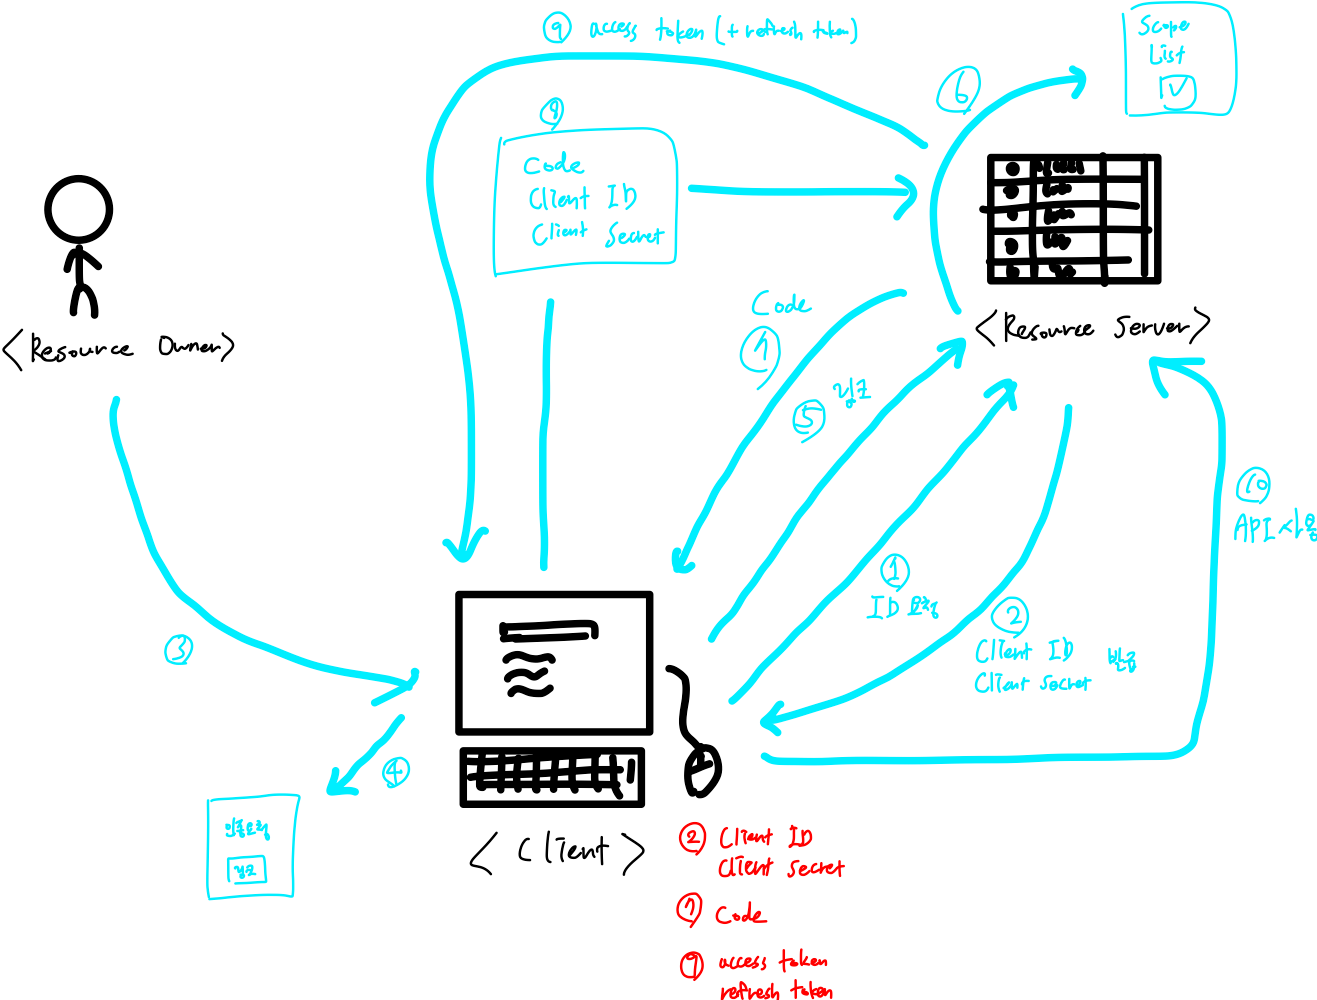 ⑨ access token (+ refresh token)
Scope
List
⑥
⑧
Code
Client ID
Client Secret
<Resource Owner>
<Resource Server>
Code
⑦
⑤ 링크
①
ID 요청
②
Client ID
Client Secret
발급
⑩
API 사용
③
④
인증요청
링크
<Client>
② Client ID
Client Secret
⑦ Code
⑨ access token
refresh token